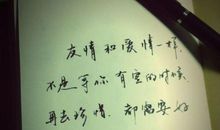 友情和爱情一样
不是等你有空的时候
再去珍惜.都需要好